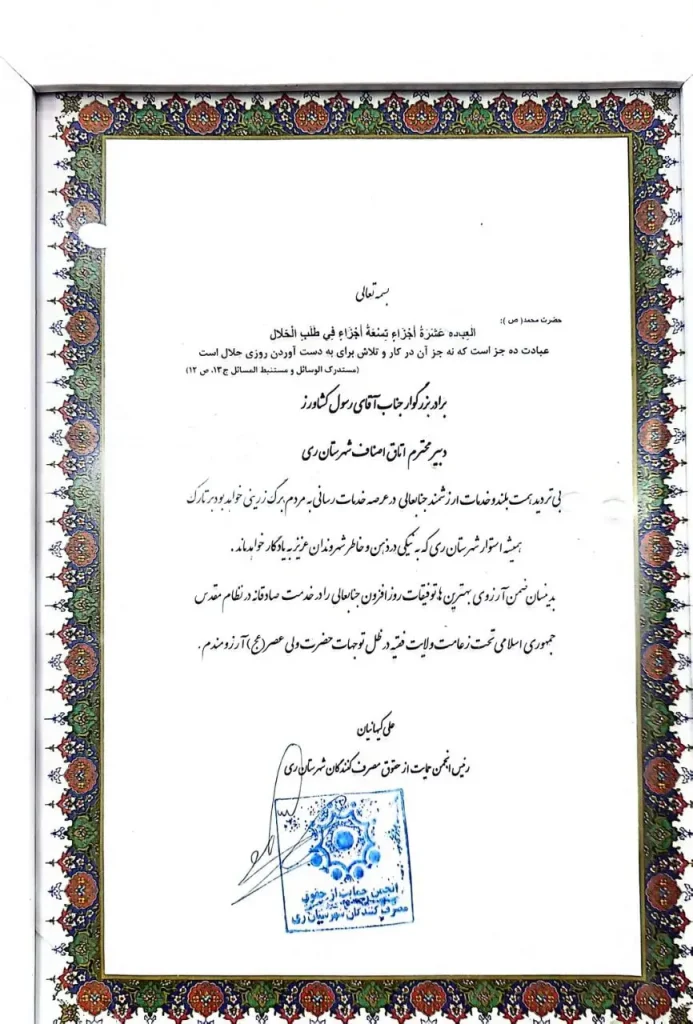 بسمه تعالی
حضرت محمد( ص ):
العباده عَشَرَةُ أجْزاءٍ تِسْعَةُ أجْزاءٍ فِي طَلَبِ الْحَلال
عبادت ده جز است که نه جز آن در کار و تلاش برای به دست آوردن روزی حلال است
(مستدرک الوسائل و مستنبط المسائل ج۱۳، ص ۱۲)
برادر بزرگوار جناب آقای رسول کشاورز
دبیر محترم اتاق اصناف شهرستان ری
بی تردید همت بلند و خدمات ارزشمند جنابعالی در عرصه خدمات رسانی به مردم برگ زرینی خواهد بود بر تارک
همیشه استوار شهرستان ری که به نیکی در ذهن و خاطر شهروندان عزیز به یادگار خواهد ماند .
بدینسان ضمن آرزوی بهترین ها توفیقات روز افزون جنابعالی را در خدمت صادقانه در نظام مقدس
جمهوری اسلامی تحت زعامت ولایت فقیه در ظل توجهات حضرت ولی عصر (عج) آرزومندم .
علی کیهانیان
رئیس انجمن حمایت از حقوق مصرف کنندگان شهرستان ری
انجمن حمایت از حقوق
مصرف کنندگان شهرستان ری